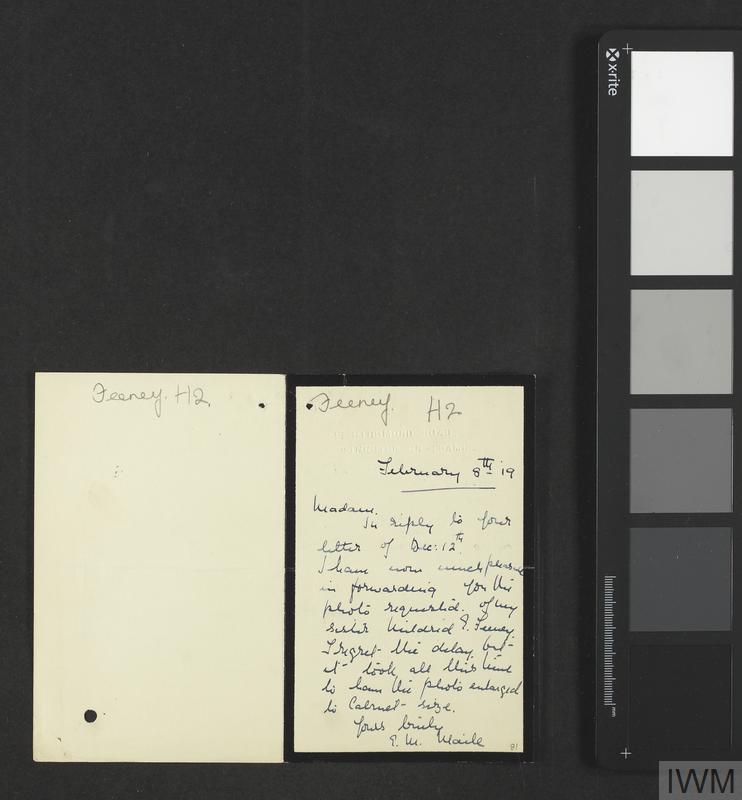 Feeney. H2
Feeney. H2
February 8th 19
Madam.
In reply to your
letter of Dec: 12th.
I have now much pleasure
in forwarding you the
photo requested. of my
sister Mildred E. Feeney.
I regret the delay, but
it took all this time
to have the photo enlarged
to Cabinet-size.
Yours truly
E. M. Maile
81
x-rite
mm
IWM